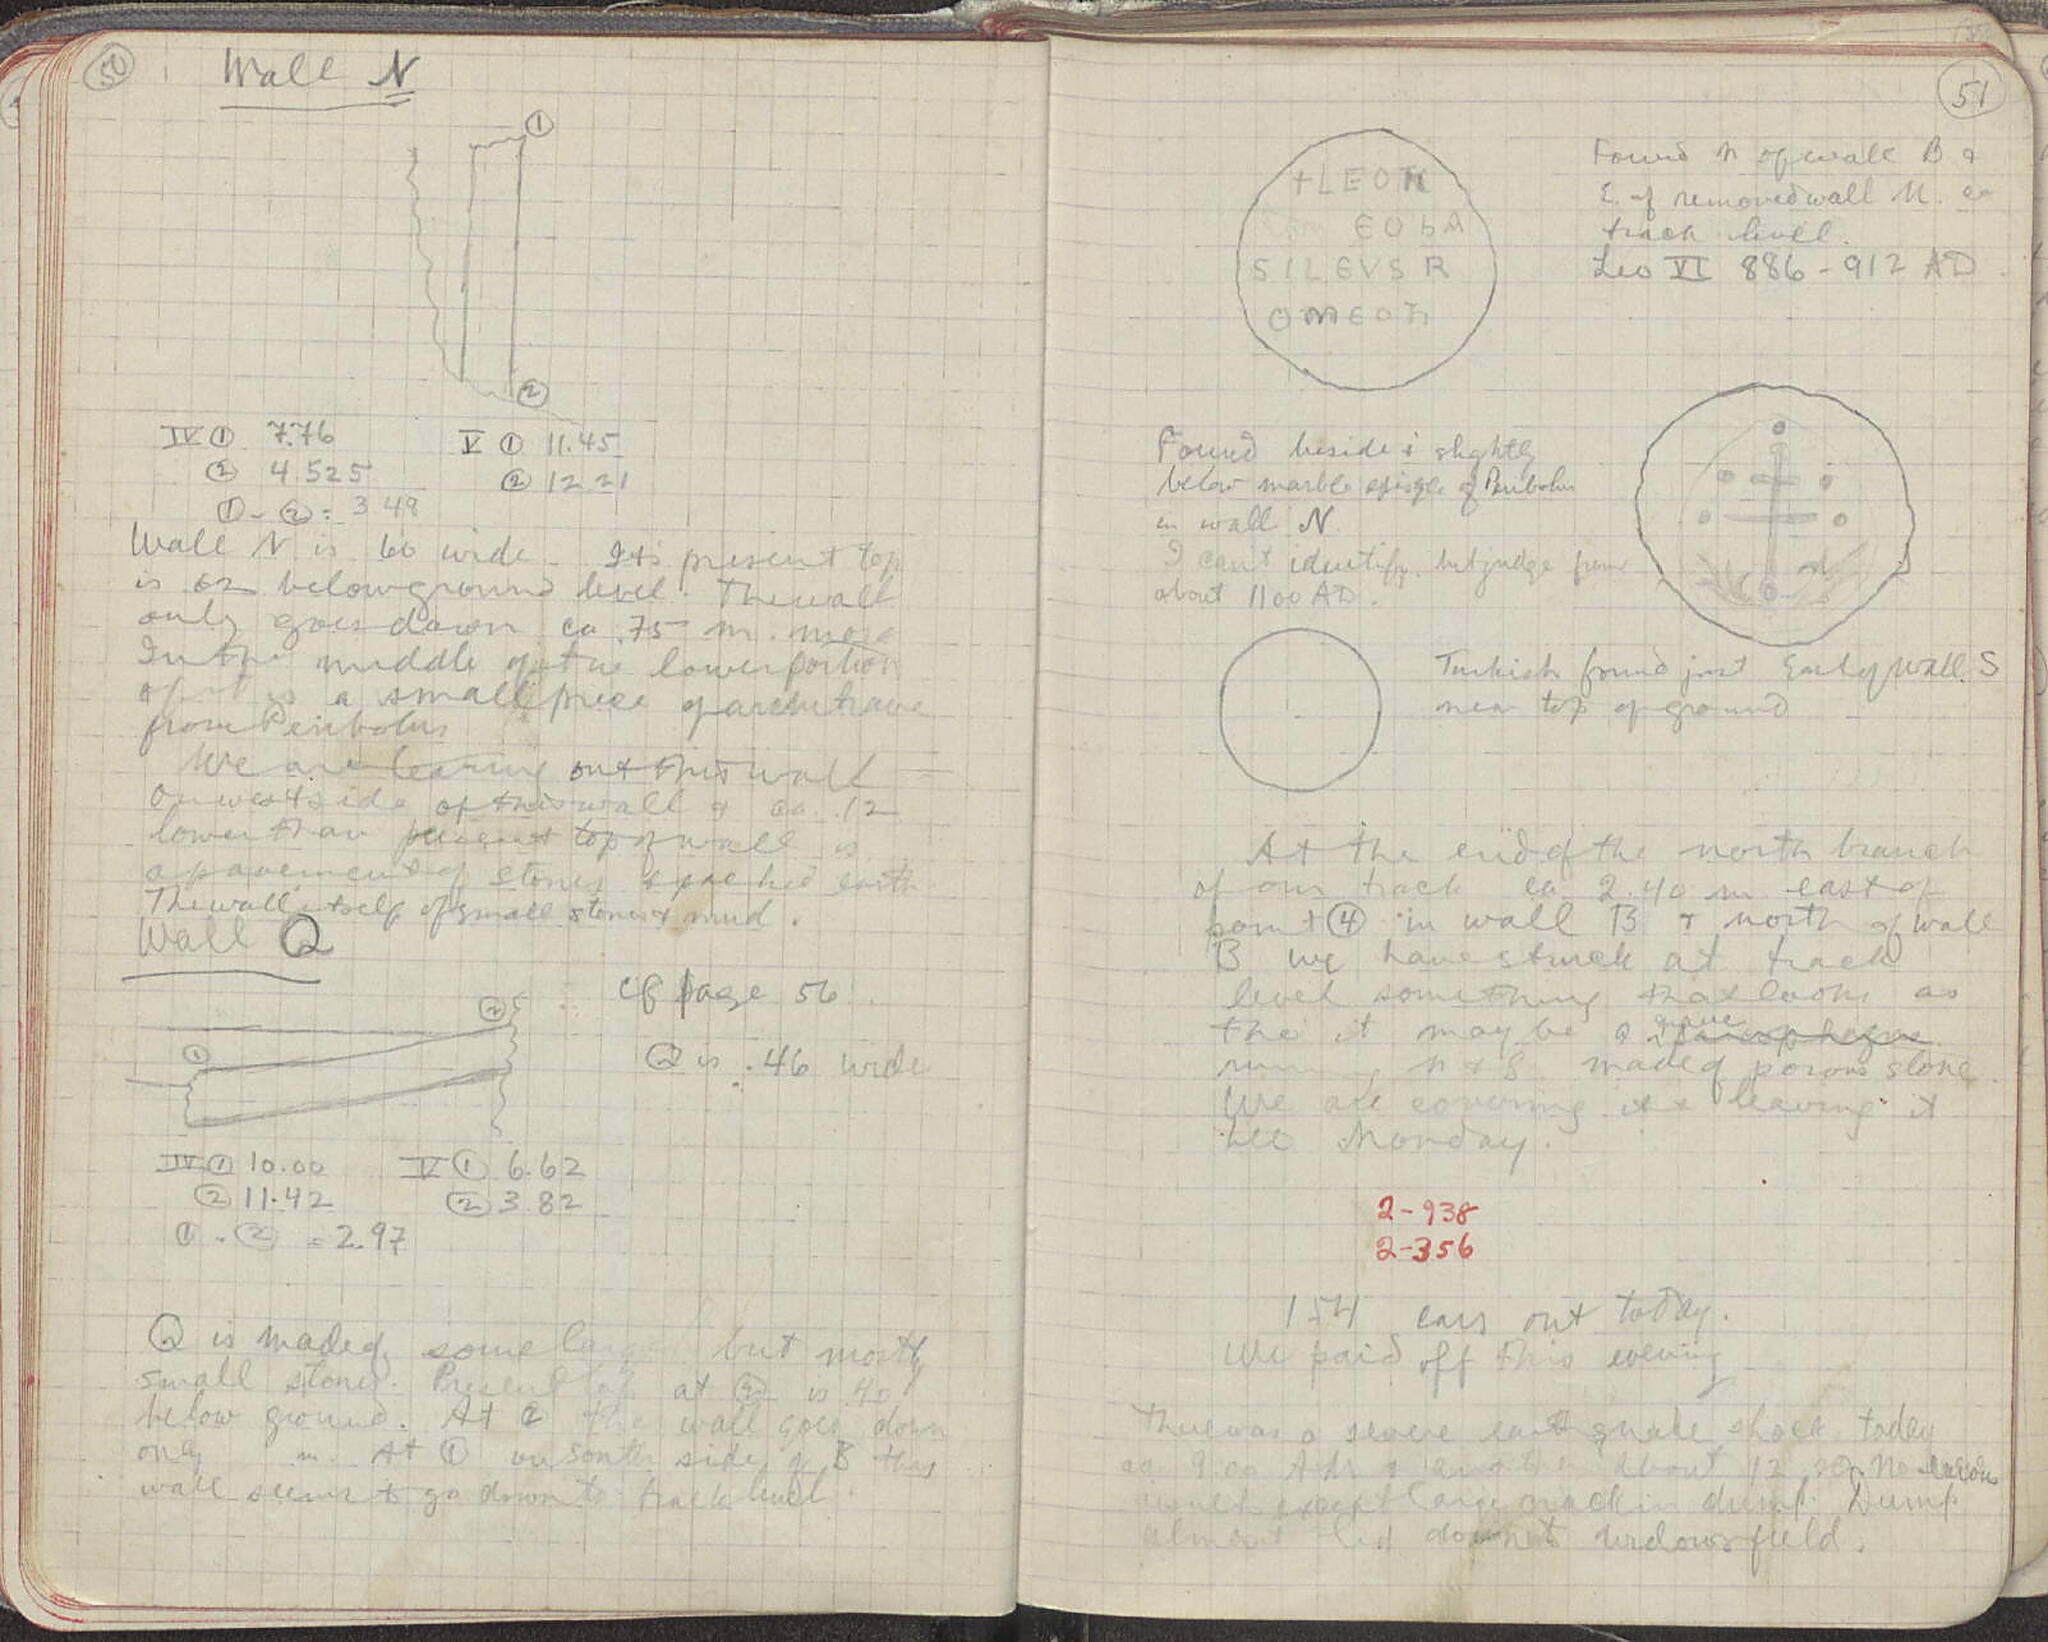 50
Wall N
1
2
IV ① 7.76
② 4.525
① - ② = 3 49
V ① 11.45
② 12.21
Wall N is 60 wide. Its present top
is 62 below ground level. The wall
only goes down ca .75 m. more
In the middle of the lower portion
of it is a small piece of architrave
from Peribolus
We are leaving out this wall
On west side of this wall & ca. .12
lower than present top of wall is
a pavement of stones & packed earth
The wall itself of small stones & mud.
Wall Q
cf page 56
2
1
Q is .46 wide
IV ① 10.00
② 11.42
① - ② = 2.97
V ① 6.62
② 3.82
Q is made of some large but mostly
small stones. Present top at ② is 40
below ground. At 2 the wall goes down
only m. At ① on south side of B this
wall seems to go down to track level.
51
+LEON
EOBA
SILEVSR
OMEON
Found N of wall B &
E. of removed wall M. at
track level.
Leo VI 886-912 AD.
Found beside & slightly
below marble of Peribolus
in wall N
I can't identify. but judge from
about 1100 AD.
Turkish found just East of Wall S
near top of ground
At the end of the north branch
of our track ca. 2.40 m east of
point ④ in wall B & north of wall
B we have struck at track
level something that looks as
tho it may be a grave
running N & S made of porous stone.
We are covering it & leaving it
till Monday.
2-938
2-356
154 cars out today.
We paid off this evening
There was a severe earthquake shock today
at 9.00 AM & another about 12.20. No serious
result except large crack in dump. Dump
almost slid down to widows field.